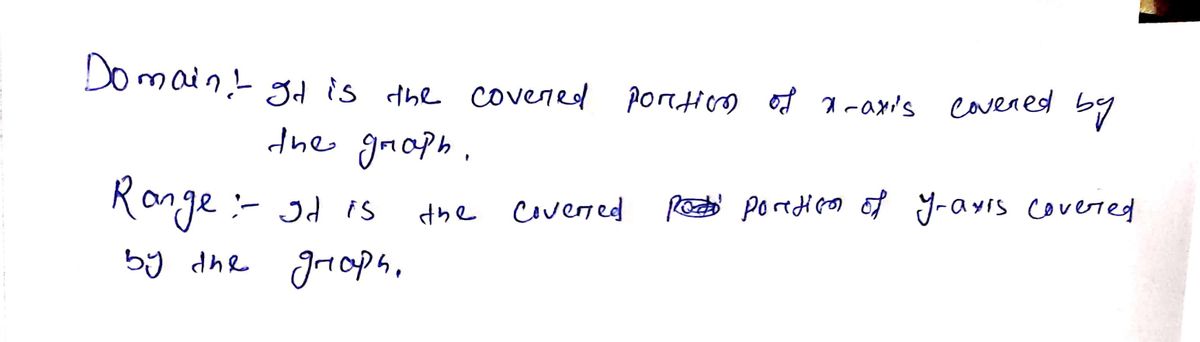 Domain:- It is the covered portion of x-axis covered by
the graph.
Range:- It is the covered portion of y-axis covered
by the graph.